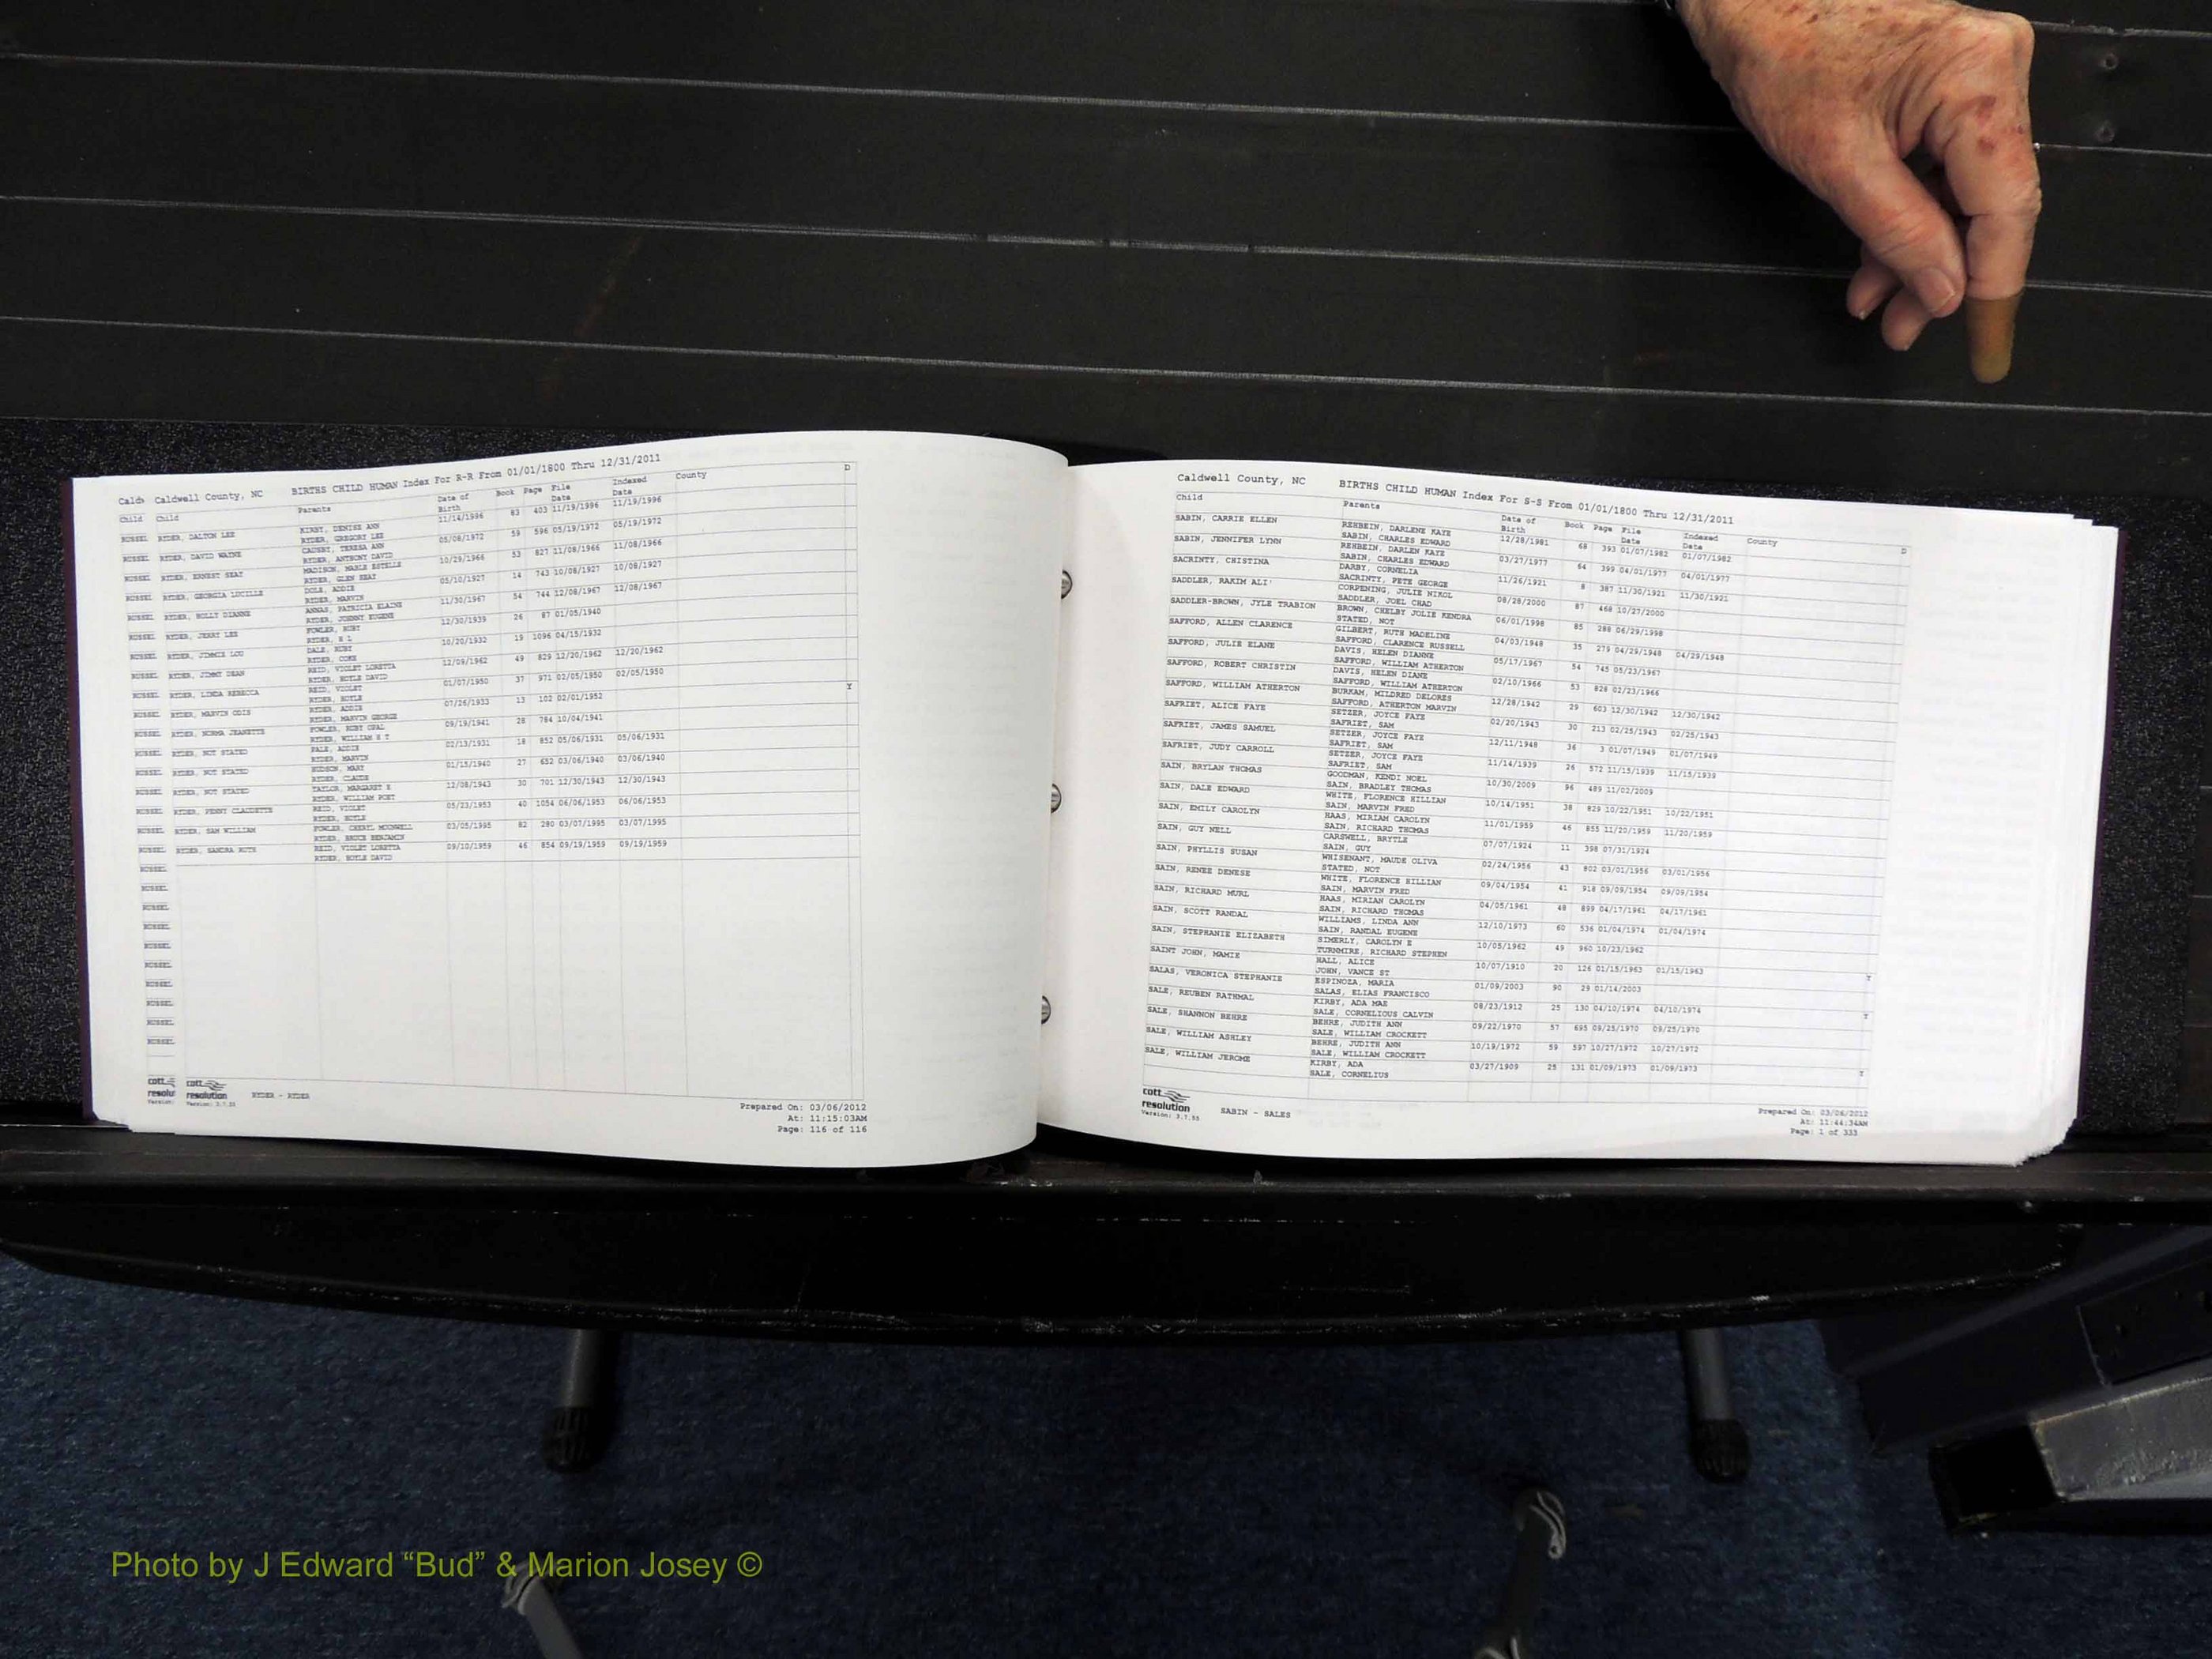 Cald Caldwell County, NC BIRTHS CHILD HUMAN Index For R-R From 01/01/1800 Thru 12/31/2011
Child Child Parents Date of Birth Book Page File Date Indexed Date County D
RYDER, DALTON LEE KIRBY, DENISE ANN 11/14/1996 83 403 11/19/1996 11/19/1996
RYDER, GREGORY LEE
RUSSEL RYDER, DAVID WAINE CAUSBY, TERESA ANN 05/08/1972 59 596 05/19/1972 05/19/1972
RYDER, ANTHONY DAVID
RUSSEL RYDER, ERNEST SEAY MADISON, MABLE ESTELLE 10/29/1966 53 827 11/08/1966 11/08/1966
RYDER, GLEN SEAY
RUSSEL RYDER, GEORGIA LUCILLE DULS, ADDIE 05/10/1927 14 743 10/08/1927 10/08/1927
RYDER, MARVIN
RUSSEL RYDER, HOLLY DIANNE ANNAS, PATRICIA ELAINE 11/30/1967 54 744 12/08/1967 12/08/1967
RYDER, JOHNNY EUGENE
RUSSEL RYDER, JERRY LEE FOWLER, RUBY 12/30/1939 26 87 01/05/1940
RYDER, H L
RUSSEL RYDER, JIMMIE LOU DALE, RUBY 10/20/1932 19 1096 04/15/1932
RYDER, COKE
RUSSEL RYDER, JIMMY DEAN REID, VIOLET LORETTA 12/09/1962 49 829 12/20/1962 12/20/1962
RYDER, HOYLE DAVID
RUSSEL RYDER, LINDA REBECCA REID, VIOLET 01/07/1950 37 971 02/05/1950 02/05/1950
RYDER, HOYLE
RUSSEL RYDER, MARVIN ODIS RYDER, ADDIE 07/26/1933 13 102 02/01/1952 Y
RYDER, MARVIN GEORGE
RUSSEL RYDER, NORMA JEANETTE FOWLER, RUBY OPAL 09/19/1941 28 784 10/04/1941
RYDER, WILLIAM H T
RUSSEL RYDER, NOT STATED PALE, ADDIE 02/13/1931 18 852 05/06/1931 05/06/1931
RYDER, MARVIN
RUSSEL RYDER, NOT STATED HUDSON, MARY 01/15/1940 27 652 03/06/1940 03/06/1940
RYDER, CLAUDE
RUSSEL RYDER, NOT STATED TAYLOR, MARGARET E 12/08/1943 30 701 12/30/1943 12/30/1943
RYDER, WILLIAM POET
RUSSEL RYDER, PENNY CLAUDETTE REID, VIOLET 05/23/1953 40 1054 06/06/1953 06/06/1953
RYDER, HOYLE
RUSSEL RYDER, SAM WILLIAM FOWLER, CHERYL MCDOWELL 03/05/1995 82 280 03/07/1995 03/07/1995
RYDER, BRUCE BENJAMIN
RUSSEL RYDER, SANDRA RUTH REID, VIOLET LORETTA 09/10/1959 46 854 09/19/1959 09/19/1959
RYDER, HOYLE DAVID
RUSSEL
RUSSEL
RUSSEL
RUSSEL
RUSSEL
RUSSEL
RUSSEL
RUSSEL
RUSSEL
RUSSEL
cott cott
resolu resolution RYDER - RYDER
Version: Version: 3.7.55
Prepared On: 03/06/2012
At: 11:15:03AM
Page: 116 of 116
Caldwell County, NC BIRTHS CHILD HUMAN Index For S-S From 01/01/1800 Thru 12/31/2011
Child Parents Date of Birth Book Page File Date Indexed Date County D
SABIN, CARRIE ELLEN REHBEIN, DARLENE KAYE 12/28/1981 68 393 01/07/1982 01/07/1982
SABIN, CHARLES EDWARD
SABIN, JENNIFER LYNN REHBEIN, DARLEN KAYE 03/27/1977 64 399 04/01/1977 04/01/1977
SABIN, CHARLES EDWARD
SACRINTY, CHISTINA DARBY, CORNELIA 11/26/1921 8 387 11/30/1921 11/30/1921
SACRINTY, PETE GEORGE
SADDLER, RAKIM ALI' CORPENING, JULIE NIKOL 08/28/2000 87 468 10/27/2000
SADDLER, JOEL CHAD
SADDLER-BROWN, JYLE TRABION BROWN, CHELBY JOLIE KENDRA 06/01/1998 85 288 06/29/1998
STATED, NOT
SAFFORD, ALLEN CLARENCE GILBERT, RUTH MADELINE 04/03/1948 35 279 04/29/1948 04/29/1948
SAFFORD, CLARENCE RUSSELL
SAFFORD, JULIE ELANE DAVIS, HELEN DIANNE 05/17/1967 54 745 05/23/1967
SAFFORD, WILLIAM ATHERTON
SAFFORD, ROBERT CHRISTIN DAVIS, HELEN DIANE 02/10/1966 53 828 02/23/1966
SAFFORD, WILLIAM ATHERTON
SAFFORD, WILLIAM ATHERTON BURKAM, MILDRED DELORES 12/28/1942 29 603 12/30/1942 12/30/1942
SAFFORD, ATHERTON MARVIN
SAFRIET, ALICE FAYE SETZER, JOYCE FAYE 02/20/1943 30 213 02/25/1943 02/25/1943
SAFRIET, SAM
SAFRIET, JAMES SAMUEL SETZER, JOYCE FAYE 12/11/1948 36 3 01/07/1949 01/07/1949
SAFRIET, SAM
SAFRIET, JUDY CARROLL SETZER, JOYCE FAYE 11/14/1939 26 572 11/15/1939 11/15/1939
SAFRIET, SAM
SAIN, BRYLAN THOMAS GOODMAN, KENDI NOEL 10/30/2009 96 489 11/02/2009
SAIN, BRADLEY THOMAS
SAIN, DALE EDWARD WHITE, FLORENCE HILLIAN 10/14/1951 38 829 10/22/1951 10/22/1951
SAIN, MARVIN FRED
SAIN, EMILY CAROLYN HAAS, MIRIAM CAROLYN 11/01/1959 46 855 11/20/1959 11/20/1959
SAIN, RICHARD THOMAS
SAIN, GUY NELL CARSWELL, BRYTLE 07/07/1924 11 398 07/31/1924
SAIN, GUY
SAIN, PHYLLIS SUSAN WHISENANT, MAUDE OLIVA 02/24/1956 43 802 03/01/1956 03/01/1956
STATED, NOT
SAIN, RENEE DENESE WHITE, FLORENCE HILLIAN 09/04/1954 41 918 09/09/1954 09/09/1954
SAIN, MARVIN FRED
SAIN, RICHARD MURL HAAS, MIRIAN CAROLYN 04/05/1961 48 899 04/17/1961 04/17/1961
SAIN, RICHARD THOMAS
SAIN, SCOTT RANDAL WILLIAMS, LINDA ANN 12/10/1973 60 536 01/04/1974 01/04/1974
SAIN, RANDAL EUGENE
SAIN, STEPHANIE ELIZABETH SIMERLY, CAROLYN E 10/05/1962 49 960 10/23/1962
TURNMIRE, RICHARD STEPHEN
SAINT JOHN, MAMIE HALL, ALICE 10/07/1910 20 126 01/15/1963 01/15/1963 Y
JOHN, VANCE ST
SALAS, VERONICA STEPHANIE ESPINOZA, MARIA 01/09/2003 90 29 01/14/2003
SALAS, ELIAS FRANCISCO
SALE, REUBEN RATHMAL KIRBY, ADA MAE 08/23/1912 25 130 04/10/1974 04/10/1974 Y
SALE, CORNELIOUS CALVIN
SALE, SHANNON BEHRE BEHRE, JUDITH ANN 09/22/1970 57 695 09/25/1970 09/25/1970
SALE, WILLIAM CROCKETT
SALE, WILLIAM ASHLEY BEHRE, JUDITH ANN 10/19/1972 59 597 10/27/1972 10/27/1972
SALE, WILLIAM CROCKETT
SALE, WILLIAM JEROME KIRBY, ADA 03/27/1909 25 131 01/09/1973 01/09/1973 Y
SALE, CORNELIUS
cott
resolution SABIN - SALES
Version: 3.7.55
Prepared On: 03/06/2012
At: 11:44:34AM
Page: 1 of 333
Photo by J Edward “Bud” & Marion Josey ©